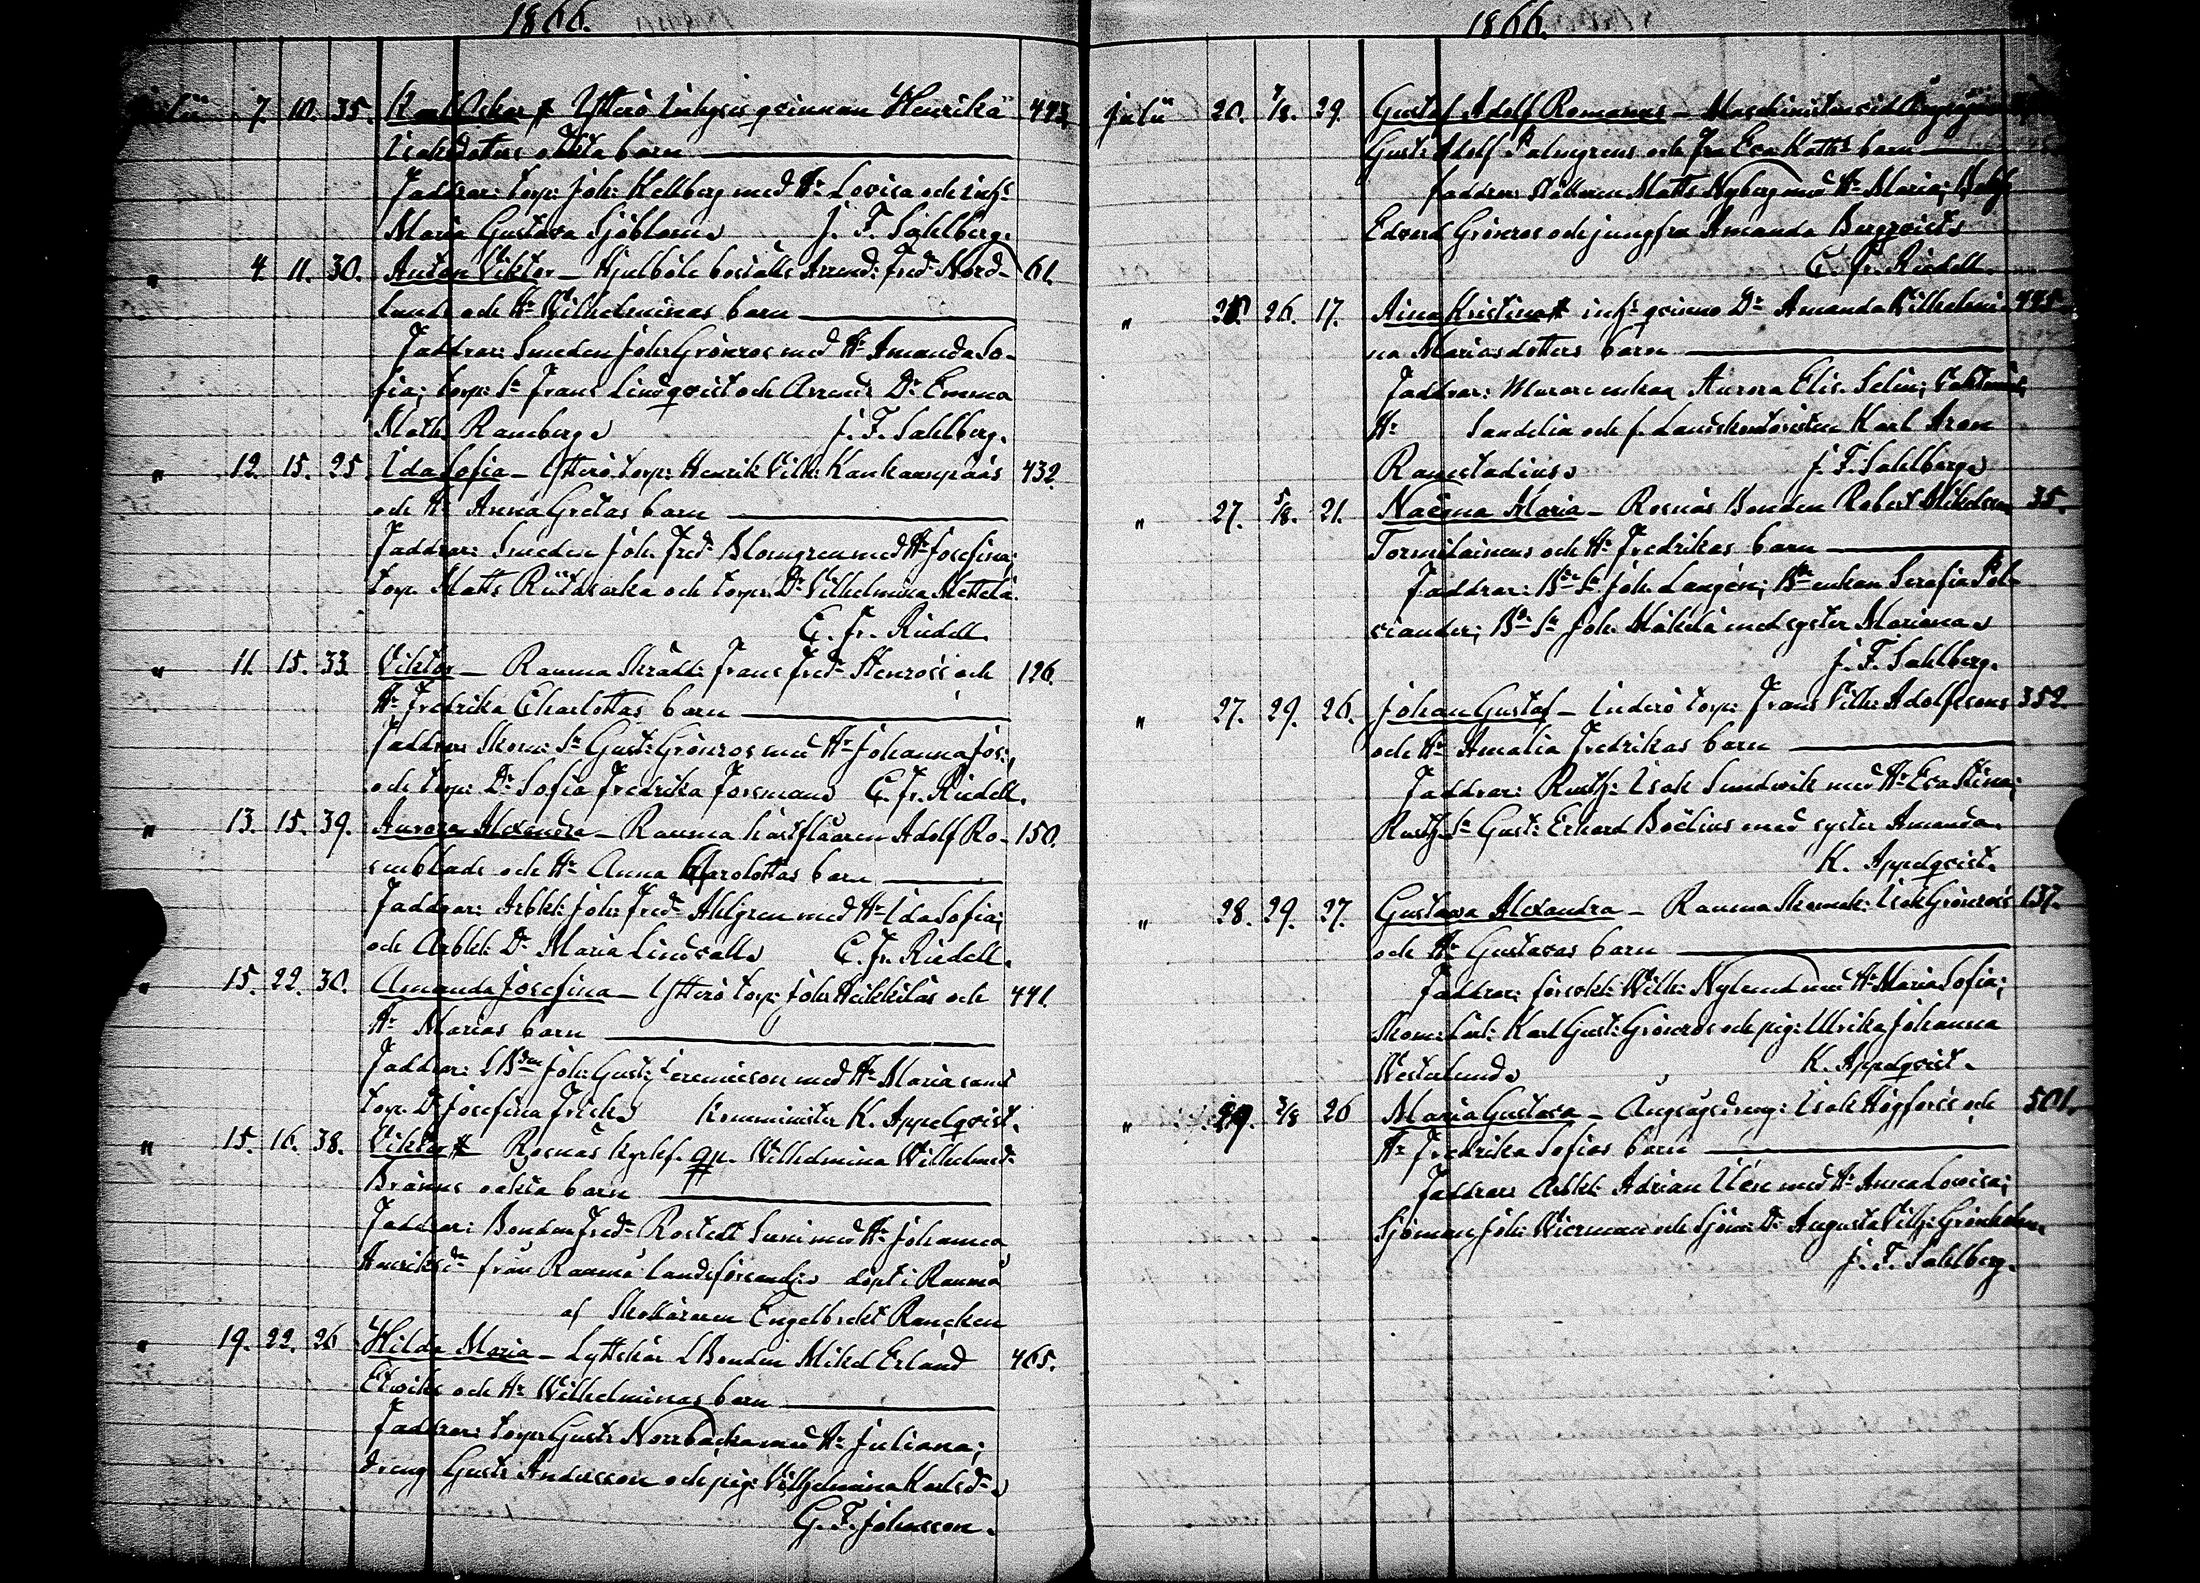 1866.
Julii 7. 10. 35. Karl Oskar # Ytterö Inhyses qvinnan Henrika 443
Isaksdotters oäkta barn
Faddrar: torp: Joh: Kellberg med H: Lovisa och inh:
Maria Gustava Sjöblom J. F. Sahlberg.
" 4. 11. 30. Anton Viktor – Hjulböle boställs Arrend: Fred: Nord- 61.
lunds och H: Wilhelminas barn
Faddrar: Smeden Joh: Grönroos med H: Amanda So-
fia; torp: S: Frans Lindqvist och Arrend: D: Emma
Math: Ramberg J. F. Sahlberg.
" 12. 15. 25. Ida Sofia – Ytterö torp: Henrik Vilh: Kankaanpääs 432.
och H: Anna Gretas barn
Faddrar: Smeden Joh. Fred: Blomgren med H: Josefina;
torp. Matts och torp: D: Vilhelmina Mettelä.
C. Fr. Riedell.
" 11. 15. 33. Viktor – Rauma Skrädd: Frans Fred: Stenroos och 126.
H: Fredrika Charlottas barn
Faddrar: Skom: S: Gust: Grönroos med H: Johanna Jos:,
och torp: D: Sofia Fredrika Forsman C. Fr. Riedell.
" 13. 15. 39. Aurora Alexandra – Rauma hästflåaren Adolf Ro- 150.
senblads och H: Anna Carolottas barn
Faddrar: Arbkl: Joh: Fred: Ahlgren med H: Ida Sofia;
och Arbkl: D: Maria Lindvall C. Fr. Riedell.
" 15. 22. 30. Amanda Josefina – Ytterö torp: Joh: Heikkiläs och 441.
H: Marias barn
Faddrar: LBden Joh: Gust: Jeremiesson med H: Maria samt
torp. D: Josefina Frick Komminister K. Appelqvist.
" 15. 16. 38. Viktor # Rosnäs kyrkf. qp. Wilhelmina Wilhelmsd:
Bränns oäkta barn
Faddrar: Bonden Fred: Rostedt Suni med H: Johanna
Henriksd: från Raumo landsförsaml: döpt i Raumo
af Skolläraren Engelbrekt Rancken
" 19. 22. 26 Hilda Maria – Lyttskär LBonden Mikel Erland 465.
Elwiks och H: Wilhelminas barn
Faddrar: torp: Gust: Norrbacka med H: Juliana;
dreng Gust: Andersson och pig: Vilhelmina Karlsd:
G. F. Johnsson.
1866.
Julii 20. 7/8. 29. Gustaf Adolf Romanus – Maschinisten vid
Gust: Adolf Palmgrens och Fru Eva Kath: barn
Faddrar: Matts Nyberg med H: Maria;
Edvard Grönroos och jungfru Amanda Bergqvist
C. Fr. Riedell.
" 26. 17. Aina Kristina # inh: qvinno D: Amanda Wilhelmi- 445.
na Mariasdotters barn
Faddrar: Murare enkan Aurora Elis. Selin;
H: Sandelin och f. Landskontoristen Karl Aron
Ramstadius J. F. Sahlberg
" 27. 5/8. 21. Naëma Maria – Rosnäs Bonden Robert Mikelsson 35.
Tormilainens och H: Fredrikas barn
Faddrar: Bde S: Joh. Langén; Bde enkan Serafia Sel-
siander; Bde S: Joh. Mäkelä med syster Mariana
J. F. Sahlberg.
" 27. 29. 26. Johan Gustaf – Inderö torp: Frans Vilh: Adolfssons 352.
och H: Amalia Fredrikas barn
Faddrar: Rusth: Isak Sundvik med H: Eva Stina;
Rusth: S: Gust: Erhard Boëlius med syster Amanda.
K. Appelqvist.
" 28. 29. 27. Gustava Alexandra – Rauma Skomak: Isak Grönroos 137.
och H: Gustavas barn
Faddrar: försvkl: Wilh: Nylund med H: Maria Sofia;
Skom: Lärl: Karl Gust: Grönroos och pig: Ulrika Johanna
Westerlund K. Appelqvist.
" 29. 2/8 26 Maria Gustava – Ångsågsdreng: Isak Högforss och 501.
H: Fredrika Sofias barn
Faddrar: Arbkl: Adrian Ilén med H: Anna Lovisa;
Sjöman Joh: Wierman och Sjöm: D: Augusta Vilh: Grönholm
J. F. Sahlberg.